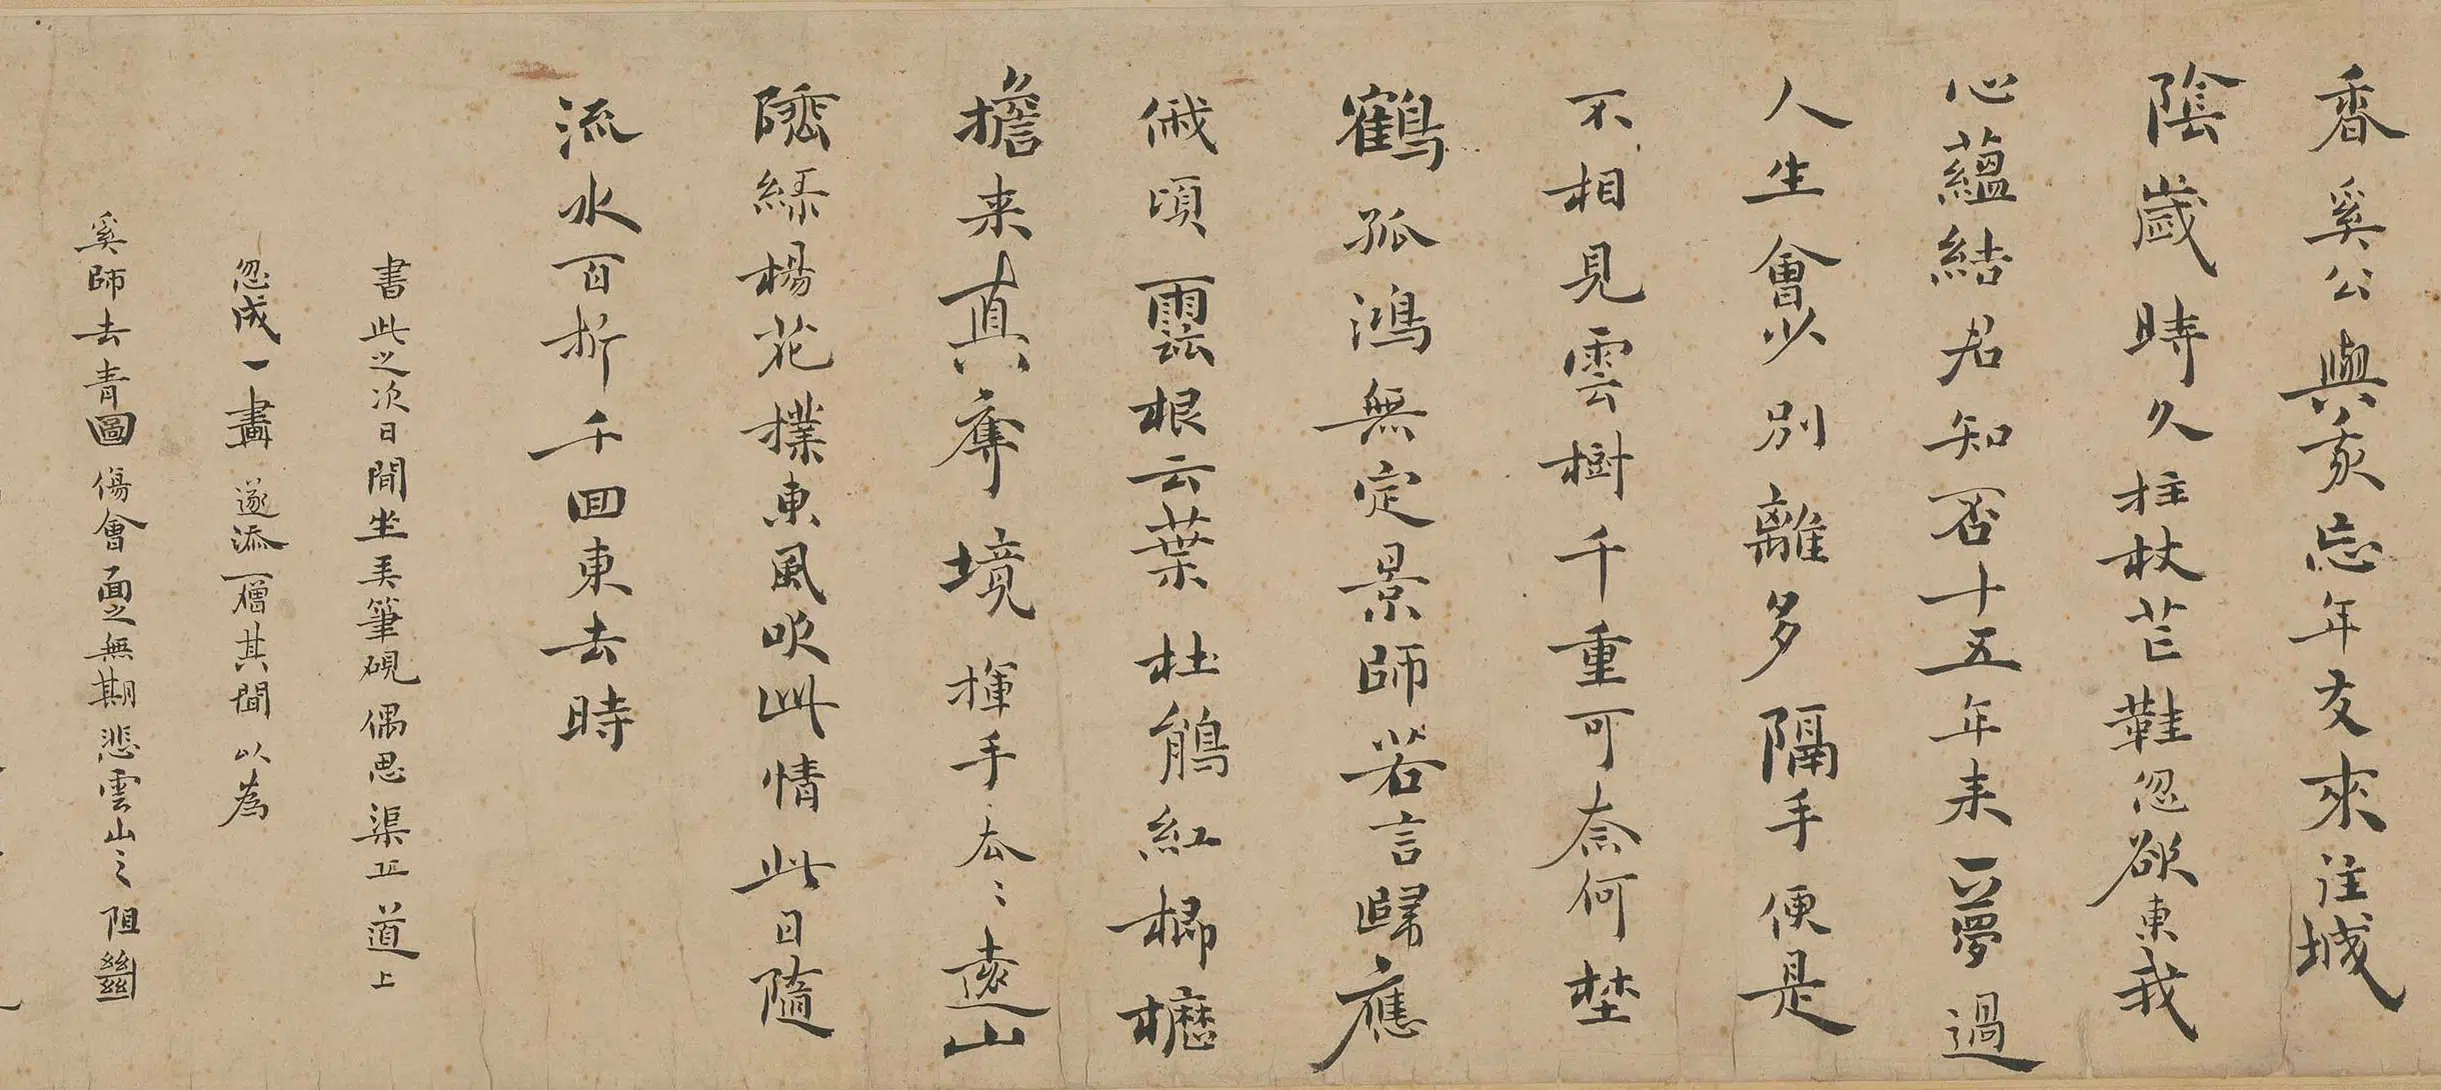 香奚公與家忘年友來往城
陰歲時久拄杖芒鞋忽欲東我
心蘊結君知否十五年来一夢過
人生會少別離多隔手便是
不相見雲樹千重可奈何埜
鶴孤鴻無定景師若言歸應
俄頃雲根云葉杜鵑紅榔櫪
擔来真奪境揮手太〻遠山
隨綠楊花撲東風吹此情此日隨
流水百折千回東去時
書此之次日閒坐弄筆硯偶思渠丘道上
忽成一畫遂添一層其間以為
奚師去青圖傷會面之無期悲雲山之阻